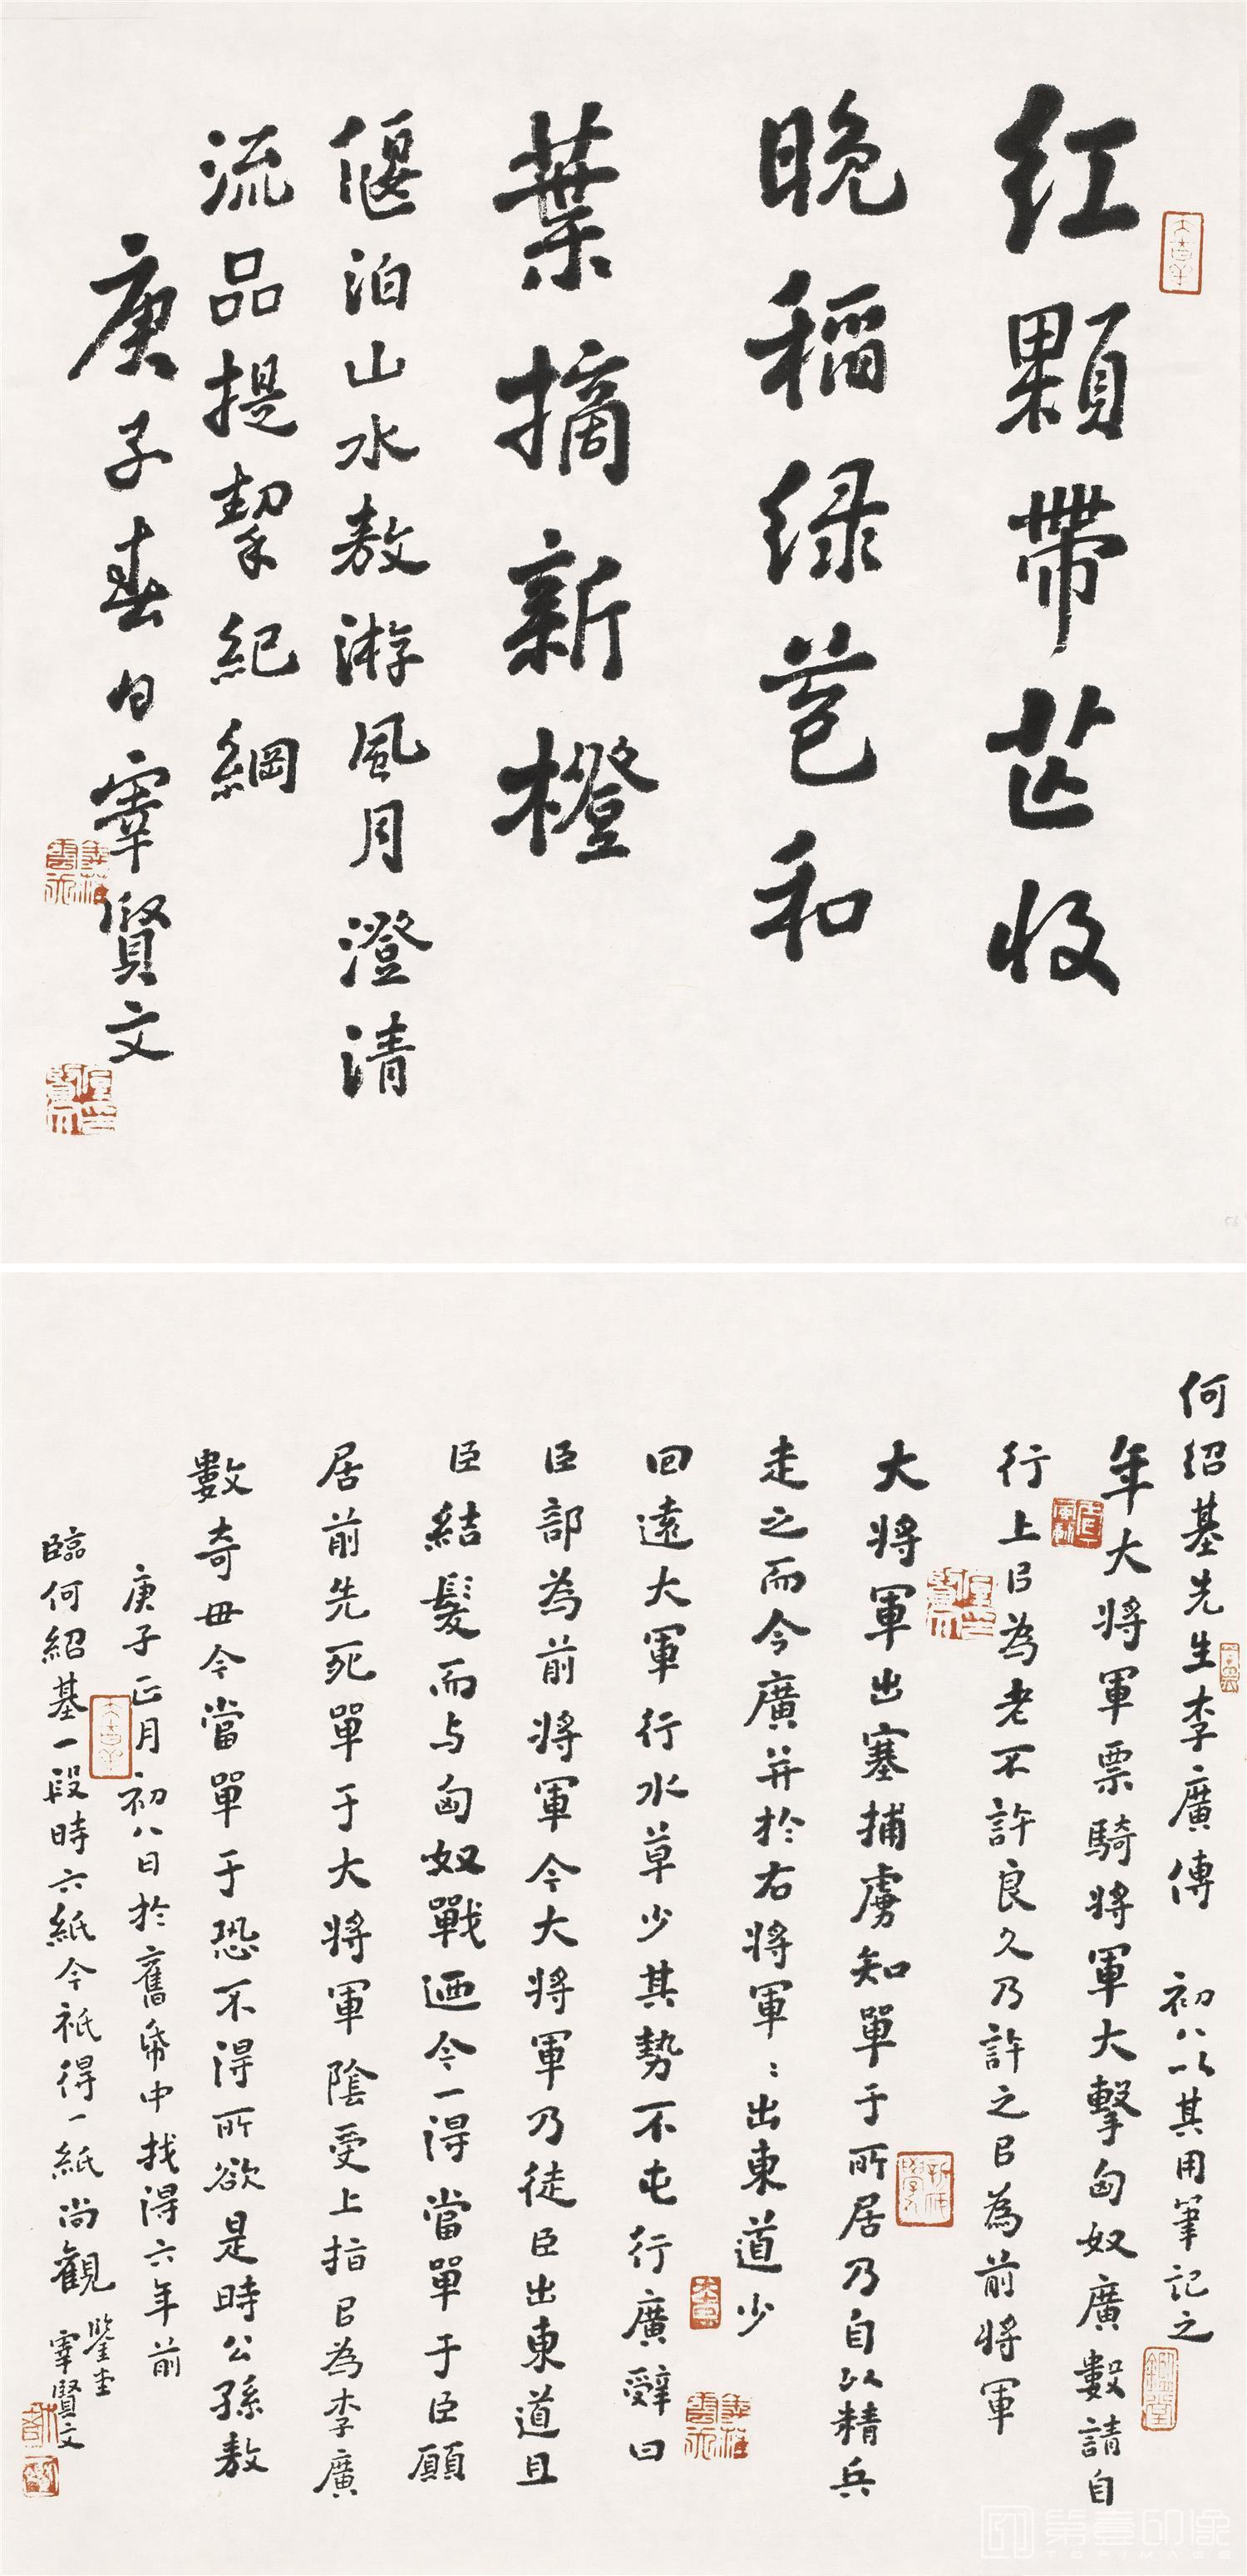 红顆帶芒收
晚稻绿苞和
葉摘新橙
偃泊山水敖游風月澄清
流品提挈紀綱
庚子春日宰賢文
何绍基先生李廣傳 初八以其用筆記之
年大将軍票騎将軍大擊匈奴廣數請自
行上㠯為老不許良久乃許之㠯為前将軍
大将軍出塞捕虜知單于所居乃自以精兵
走之而令廣并於右将軍〻出東道少
回遠大軍行水草少其勢不屯行廣辭曰
臣部為前将軍今大将軍乃徒臣出東道且
臣結髮而与匈奴戰迺今一得當單于臣願
居前先死單于大将軍陰受上指㠯為李廣
數奇毋令當單于恐不得所欲是時公孫敖
庚子正月初八日於舊帋中找得六年前
臨何紹基一段時六紙今衹得一紙尚觀
鑒堂
宰賢文
第壹印像
TOPIMAGE